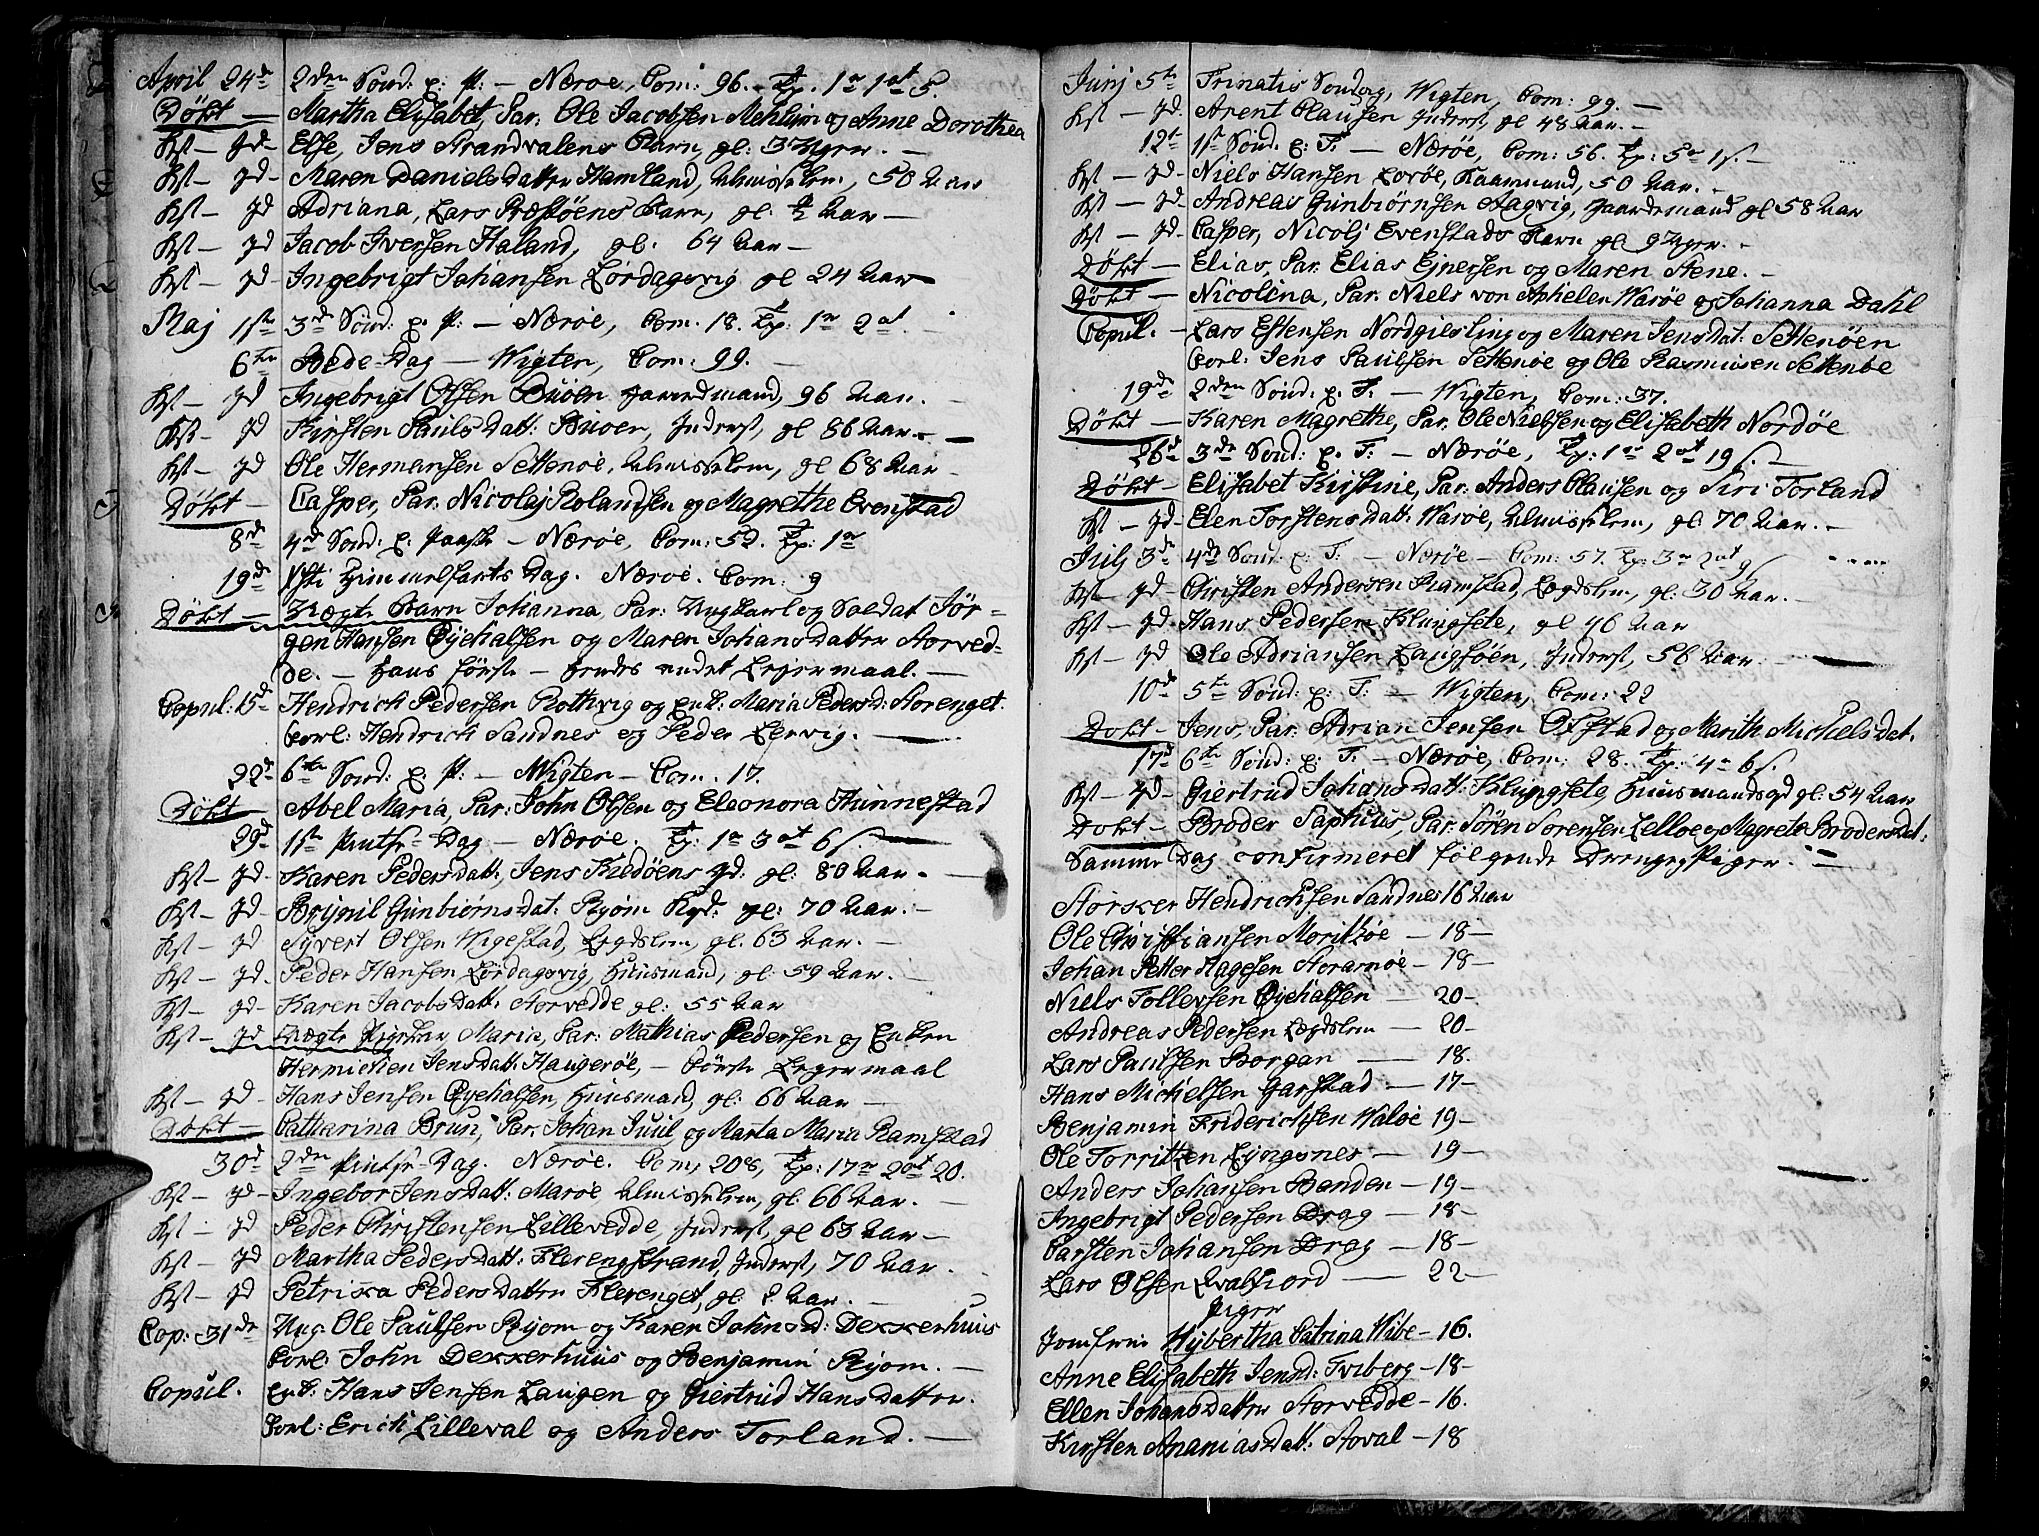 April 24de 2den Sönd: p: P: — Næröe, Com: 96. Tp. 1r 1ort 5.
Döbt — Martha Elisabet, Par. Ole Jacobsen Mehlum og Anne Dorothea
Kst — Jd — Else, Jens Strandvalens Barn, gl: 3 Uger. —
Kst — Jd — Maren Daniels Datter Hamland, Almisselem, 58 Aar
Kst — Jd Adriana, Lars Præstöens Barn, gl: ½ Aar —
Kst — Jd Jacob Iversen Haland, gl: 64 Aar —
Kst — Jd — Ingebrigt Johansen Lördagsvig gl 24 Aar
Maj 1ste 3de Sönd: p: P: — Næröe, Com. 18. Tp: 1r 2ort
6te Bede-Dag — Wigten, Com: 99. —
Kst — Jd Ingebrigt Olsen Buöen Gaardmand, 96 Aar.
Kst — Jd Kirsten Pauls Datt: Buoen, Inderst, gl 86 Aar —
Kst — Jd Ole Hermansen Settenöe, Almisselem, gl 68 Aar
Döbt — Casper, Par. Nicolaj Rolandsen og Magrethe Evenstad
8de 4de Sönd: p: Paaske — Næröe, Com: 52. Tp: 1r
19de Xsti Himmelfarts Dag. Næröe. Com: 9
Döbt — Uægte Barn Johanna, Par: Ungkarl og Soldat Jör-
gen Hansen Öjehalsen og Maren Johans Datter Storved-
de. — Hans förste — hendes andet Lejermaal. —
Copul: 15de Hendrich Pedersen Rothvig og Enk: Maria Peders D: Storenget.
Forl: Hendrich Sandnes og Peder Lervig. —
22de 6te Sönd: p: P: — Wigten — Com. 17.
Döbt — Abel Maria, Par: John Olsen og Eleonora Hunnestad
29de 1ste Pintse-Dag — Næröe. Tp: 1r 3ort 6 s.
Kst — Jd — Karen Peders Datt, Jens Kildöens Jd. gl: 80 Aar. —
Kst — Jd — Brynil Gunbiörns Dat. Ryöm Kgd: gl: 70 Aar. —
Kst — Jd Syvert Olsen Wigestad, Legdslem, gl. 63 Aar. —
Kst — Jd. Peder Hansen Lördagsvig, Huusmand, gl: 59 Aar.
Kst — Jd — Karen Jacobs Datt: Storvedde gl: 55 Aar
Kst — Jd Uægte Pigebarn Maria, Par: Mathias Pedersen og Enken
Hermichen Jens Datt: Haugeröe, — Förste Lejermaal
Kst — Jd. Hans Jensen Öyehalsen, Huusmand, gl: 66 Aar —
Döbt — Catharina Brun, Par. Johan Juul og Marta Maria Ramstad
30de 2den Pintse-Dag. Næröe. Com, 208, Tp: 17r 2ort 20.
Kst — Jd — Ingebor Jens Datt: Maröe Almisselem, gl. 66 Aar. —
Kst — Jd Peder Christensen Lillevedde, Inderst, gl 63 Aar —
Kst — Jd Martha Peders Datt: Flerengstrand, Inderst, 70 Aar.
Kst — Jd Petrixa Peders Datter Flerenget, gl. 2 Aar. —
Cop: 31de Ung. Ole Paulsen Ryom og Karen Johns D: Dexxerhuus
Forl: John Dexxerhuus og Benjamin Ryom. —
Copul. Enk: Hans Jensen Laugen og Giertrud Hans Datter.
Forl: Erich Lilleval og Anders Torland. —
Junj 5te Trinatis Sondag, Wigten, Com: 99. —
Kst — Jd. Arent Clausen Inderst, gl 48 Aar. —
12te 1ste Sönd: p: T. — Næröe, Com: 56. Tp: 5r 1s. —
Kst — Jd — Niels Hansen Loröe, Kaarmand, 50 Aar. —
Kst — Jd. Andreas Gunbiörnsen Aagvig, Gaardmand gl 58 Aar
Kst — Jd. Casper, Nicolj Evenstads Barn gl 9 Uger. —
Döbt — Elias, Par. Elias Ejnersen og Maren Stene. —
Döbt — Nicolina, Par. Niels von Aphelen Waröe og Johanna Dahl
Copul. — Lars Estensen Nordgiesling og Maren Jens Dat: Settenöen
Forl: Jens Paulsen Settenöe og Ole Rasmusen Settenöe
19de 2den Sönd: p. T. — Wigten, Com: 37.
Döbt — Karen Magrethe, Par. Ole Nielsen og Elisabeth Nordöe
26de 3de Sönd: p. T: — Næröe, Tp: 1r 2ort 19 s. —
Döbt — Elisabet Kirstine, Par: Anders Clausen og Siri Torland
Kst — Jd — Elen Torstens Datt: Waröe, Almisselem, gl: 70 Aar. —
Julj 3de 4de Sönd: p: T: — Næröe — Com: 57. Tp: 3r 2ort 9s
Kst — Jd — Christen Andersen Ramstad, Legdslem, gl: 30 Aar. —
Kst — Jd. Hans Pedersen Klungsete, gl 46 Aar
Kst — Jd Ole Adriansen Laugsöen, Inderst, 56 Aar. —
10de 5te Sönd: p: T: — Wigten, Com: 22
Döbt — Jens, Par. Adrian Jensen Ofstad og Marith Michels Dat.
17de 6te Sönd: p: T. — Næröe, Com: 28. Tp: 4r 6s.
Kst — Jd — Giertrud Johans Datt: Klungsete, Huusmands Jd gl: 54 Aar
Döbt — Broder Saphuus, Par. Sören Sorensen Lelloe og Magrete Broders Dat:
Samme Dag confirmeret fölgende Drenge og Piger. —
Storxer Hendrichsen Sandnes 16 Aar
Ole Christiansen Moritzöe — 18 —
Johan Petter Hagesen Storarnöe — 18 —
Niels Tollevsen Öyehalsen — 20 —
Andreas Pedersen Legdslem — 20 —
Lars Paulsen Borgan — 18.
Hans Michelsen Garstad — 17 —
Benjamin Friderichsen Walöe 19 —
Ole Torritzen Lyngsnes — 19 —
Anders Johansen Banden — 19 —
Ingebrigt Pedersen Drag — 18 —
Carsten Johansen Drag — 18 —
Lars Olsen Qvalfiord — 22 —
Piger
Jomfrue Hybertha Catrina Wibe — 16.
Anne Elisabeth Jens D: Fviberg — 18 —
Ellen Johans Datter Storvedde — 16.
Kirsten Ananias Datt: Aoval — 18